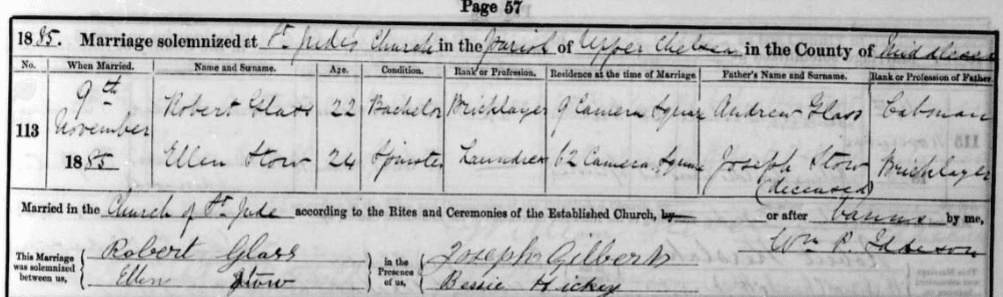 Page 57
1885. Marriage solemnized at St Jude's Church in the Parish of Upper Chelsea in the County of Middlesex
No. When Married. Name and Surname. Age. Condition. Rank or Profession. Residence at the time of Marriage Father's Name and Surname. Rank or Profession of Father.
9th Robert Glass 22 Bachelor Bricklayer 9 Camera Square Andrew Glass Cabman
113 November
1885 Ellen Stow 24 Spinster Laundress 62 Camera Square Joseph Stow Bricklayer
(deceased)
Married in the Church of St Jude according to the Rites and Ceremonies of the Established Church, by or after banns by me,
This Marriage was solemnized between us, Robert Glass in the Presence of us, Joseph Gilbert Wm P.
Ellen Stow Bessie Hickey